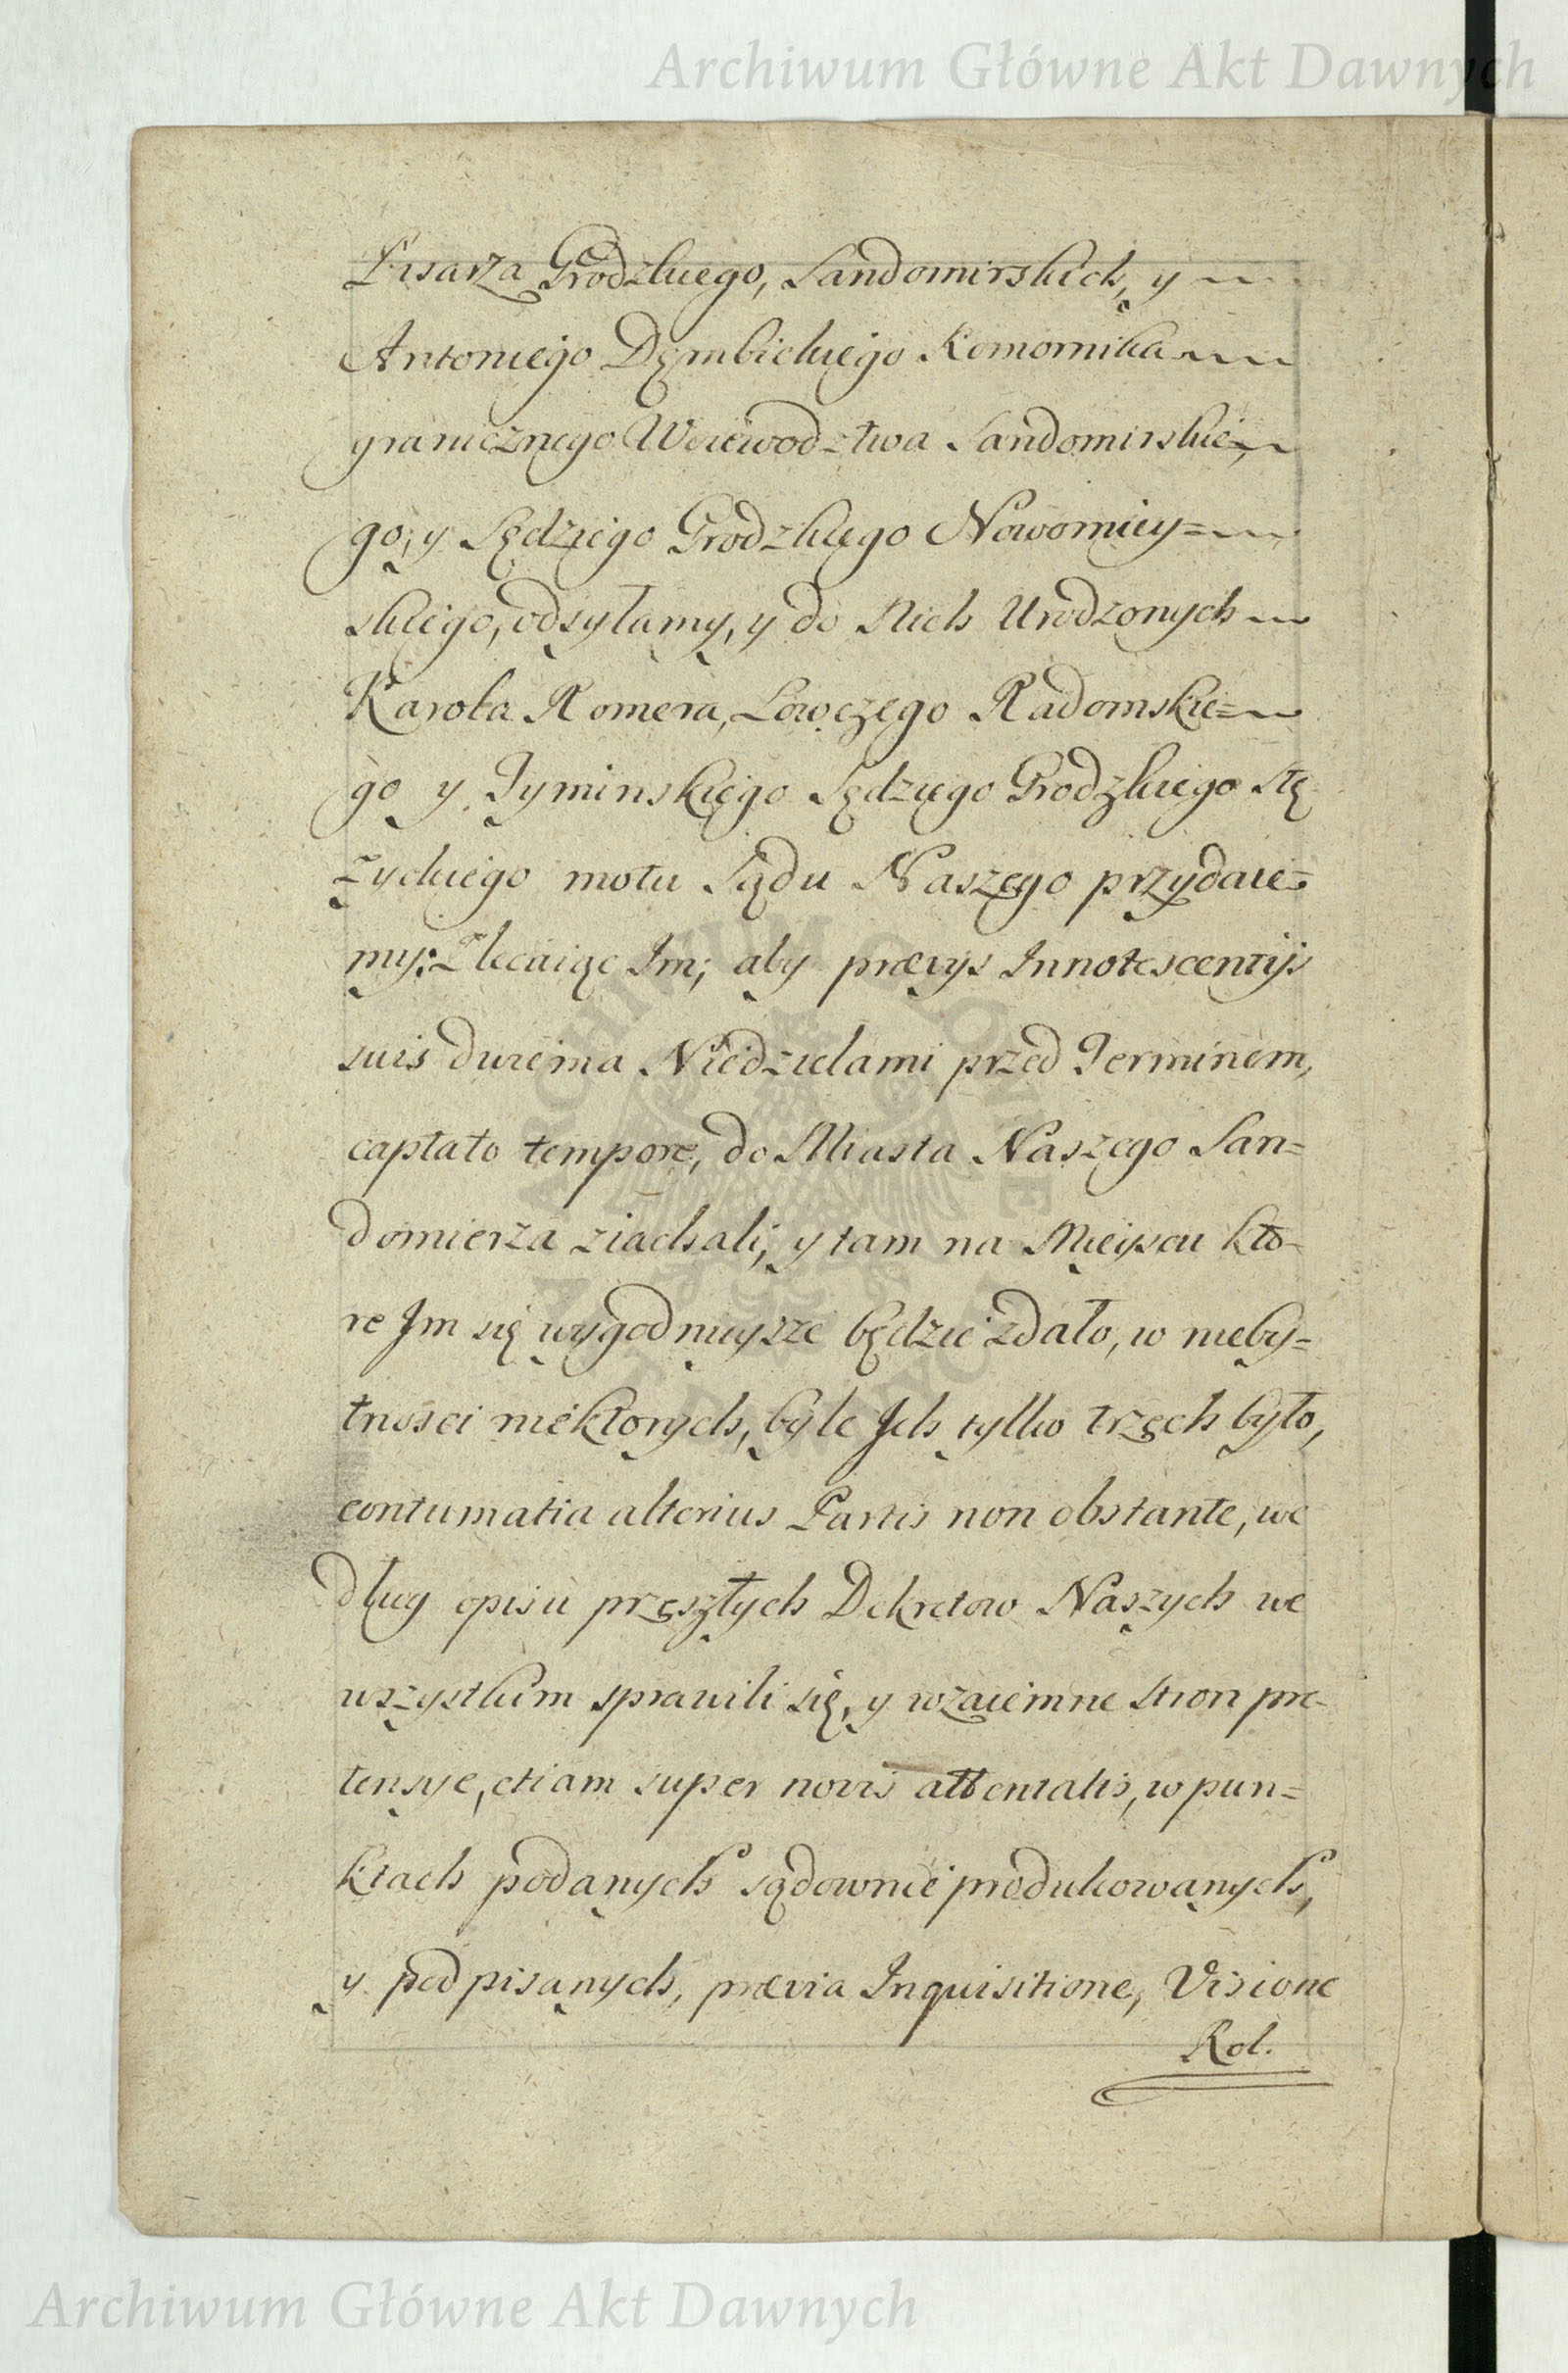 Archiwum Główne Akt Dawnych
Pisarza Grodzkiego, Sandomirskich, y
Antoniego Dęmbickiego Komornika
granicznego Woiewodztwa Sandomirskie=
go, y Sędziego Grodzkiego Nowomiey=
skiego, odsyłamy, y do Nich Urodzonych
Karola Romera, Łowczego Radomskie=
go y Tyminskiego Sędziego Grodzkiego Stę
życkiego motu Sądu Naszego przydaie=
my: Zlecaiąc Im, aby prævijs Innotescentijs
suis dwiema Niedzielami przed Terminem,
captato tempore, do Miasta Naszego San=
domierza ziachali, y tam na Mieyscu kto-
re Im się wygodnieysze będzie zdało, w nieby=
tnosci niektorych, byle Ich tylko trzech było,
contumatia alterius Partis non obstante, we
dług opisu przeszłych Dekretow Naszych we
wszystkim sprawili się, y wzaiemne stron pre-
tensye, etiam super novis attentatis, w pun=
ktach podanych sądownie produkowanych,
y podpisanych, prævia Inquisitione, Visione
Rol.
Archiwum Główne Akt Dawnych